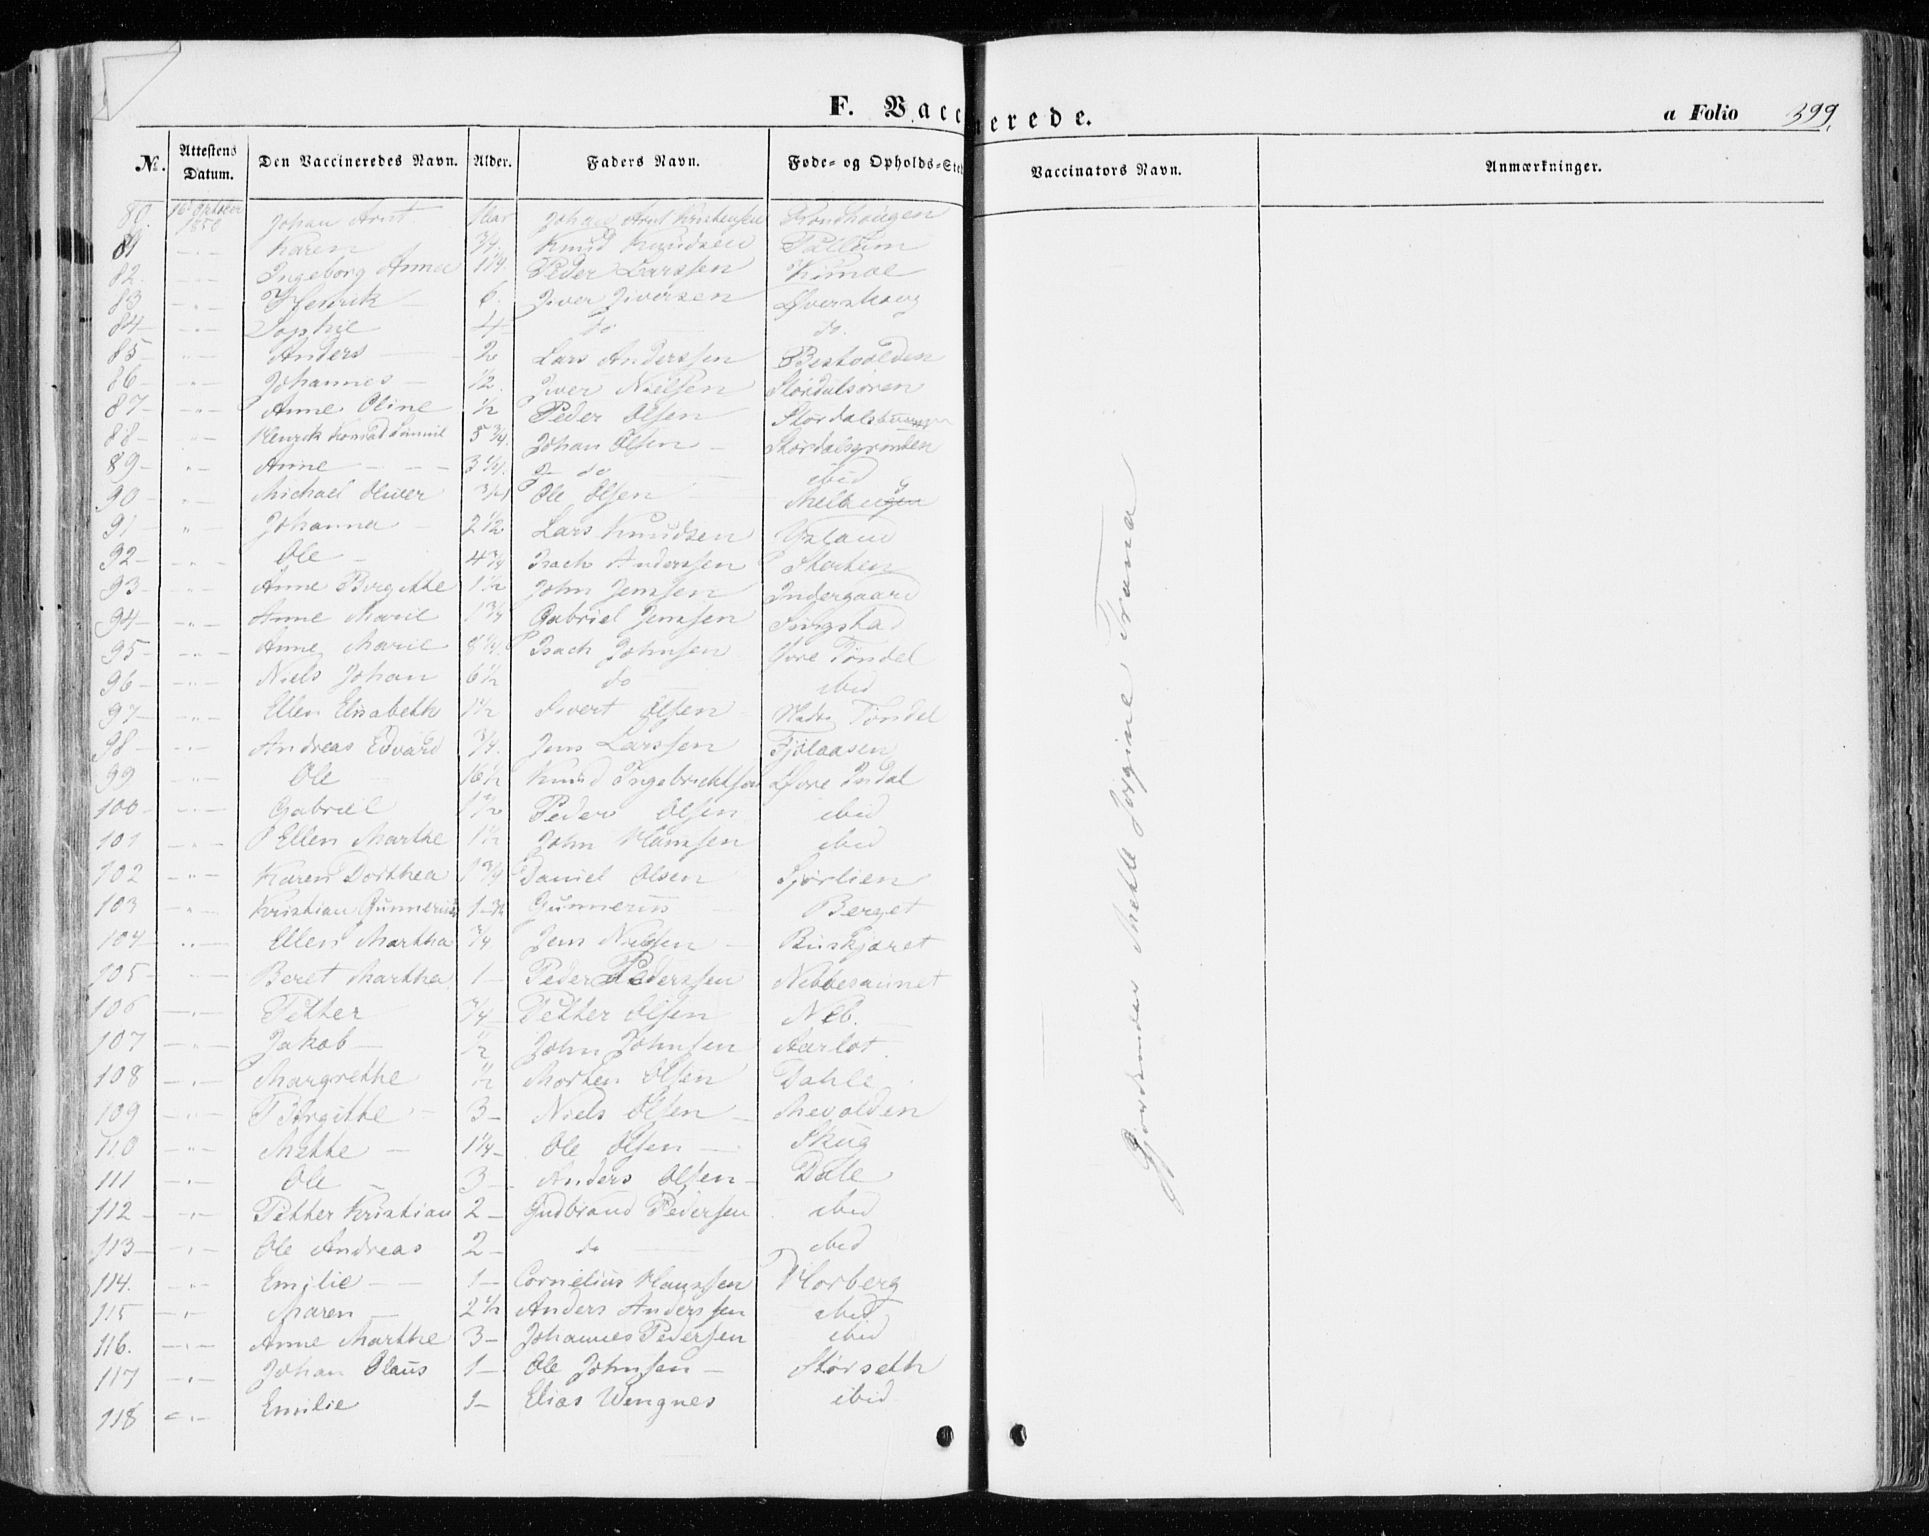 F. Vaccinerede.
a Folio 399.
No. Attestens Datum. Den Vaccineredes Navn. Alder. Faders Navn. Føde- og Opholds-Sted Vaccinators Navn. Anmærkninger.
80. 16de Oktober 1850 Johan Arnt Johan Arnt Kristensen
81 -"- Karen 3/4. Knud Knudsen
82. -"- Ingeborg Anna 1 1/4. Peder Larssen
83 -"- Henrik 6. Iver Iversen Øverskoug
84- -"- Sophie 4 do do.
85- -"- Anders 2 Lars Anderssen
86- -"- Johannes 1/2. Iver Nielsen Størdalsøren
87- -"- Anne Oline 1/2 Peder Olsen
88- -"- Henrik Konrad 5 3/4. Johan Olsen
89- -"- Anne 3 1/4. do ibid
90- -"- Michael Oliver 3/4 Ole Olsen
91- -"- Johanna 2 1/2 Lars Knudsen
92- -"- Ole 4 3/4 Isach Anderssen
93- -"- Anne Birgitte 1 1/2 John Jenssen Indergaard
94- -"- Anne Marie 1 3/4 Gabriel Jenssen
95- -"- Anne Marie 8 1/4. Isach Johnsen Øvre Tøndel
96- -"- Niels Johan 6 1/2 do ibid
97- -"- Ellen Elisabeth 1 1/2 Sivert Olsen Tøndel
98- -"- Andreas Edvard 3/4. Jens Larssen Fjølaasen
99 -"- Ole 16 1/2 Knud Ingebrichtsen Øvre Indal
100- -"- Gabriel 1 1/2 Peder Olsen ibid
101 -"- Ellen Marthe 1 1/2 John Hanssen ibid
102 -"- Karen Dorthea 1 3/4 Daniel Olsen
103 -"- Kristian Gunnerius 1-3/4 Gunnerius Berget
104- -"- Ellen Martha 3/4 Jens Nielsen
105- -"- Beret Martha 1- Peder Pederssen
106 -"- Petter 3/4 Petter Olsen
107 -"- Jakob- 1/2 John Johnsen
108 -"- Margrethe 1/2 Morten Olsen Dahle
109 -"- Birgitte 3- Niels Olsen
110 -"- Mette 1 1/4- Ole Olsen
111 -"- Ole 3- Anders Olsen Dale
112 -"- Petter Kristian 2- Gudbrand Pedersen ibid
113- -"- Ole Andreas 2- do ibid
114. -"- Emilie 1- Cornelius Hanssen
115 -"- Maren 2 1/2 Anders Anderssen ibid
116. -"- Anne Marthe 3- Johannes Pedersen ibid
117 -"- Johan Olaus 1- Ole Johnsen Størseth
118 -"- Emilie 1- Elias Wengnes ibid.
Gjordemoder Mette Jørgine Trana